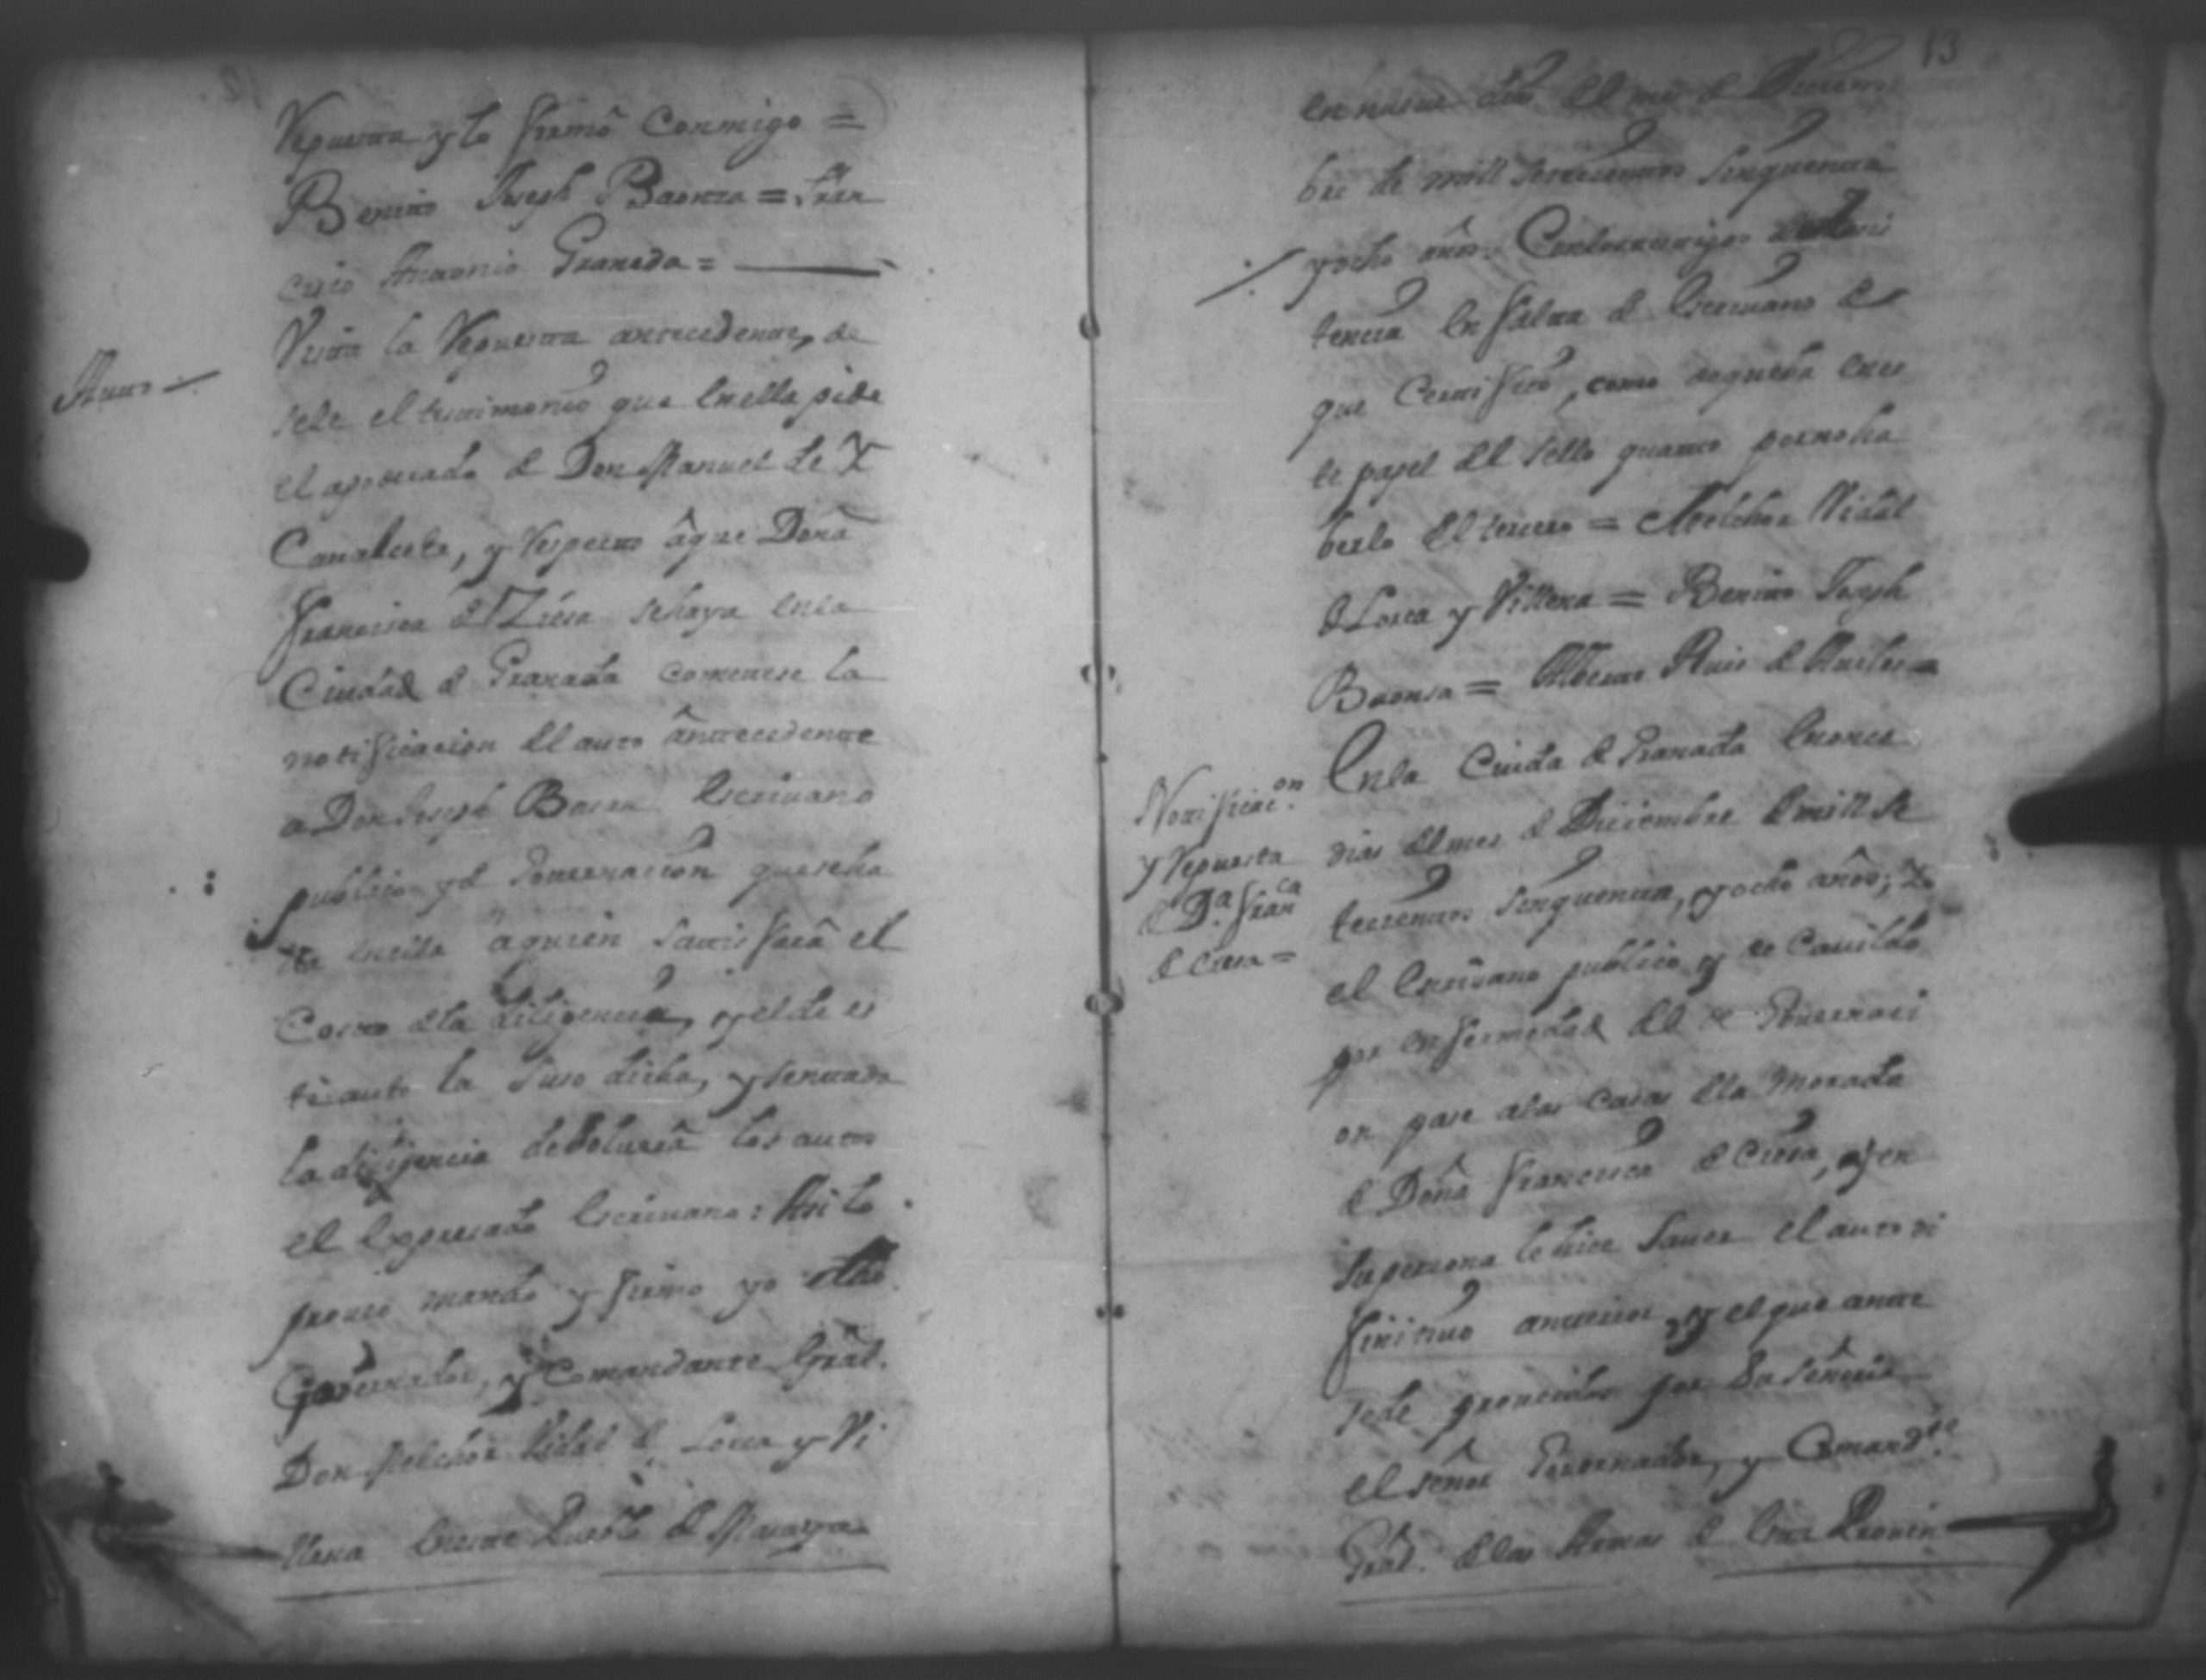 Repuesta y lo firmô Conmigo =
Benito Joseph Baonza = Fran
cisco Antonio Granada =
Auto
Vista la Repuesta antecedente, de
sele el testimonio que en ella pide
el apoderado de Don Manuel de
Canaleta, y respecto â que Doña
Francisca de Ziesa se haya en la
Ciudad de Granada cometese la
notificacion del auto ântecedente
a Don Joseph Baesa Escrivano
publico y de Governacion que reha
de en ella â quien satisfarâ el
Costo de la diligencia, y el de es
te auto la suso dicha, y sentada
la diligencia debolverâ los autos
el Expresado Escrivano: Asi lo
proveo mando y firmo yo dho.
Governador, y Comandante Gral.
Don Melchor Vidal de Lorca y Vi
llena en este Pueblo de Masaya
13
en nueve dias del mes de Diciem
bre de mill setecientos sinquenta
y ocho años. Con los testigos de mi asis
tencia en falta de Escrivano de
que Certifico, como de que va en es
te papel del sello quarto por no ha
berlo del tercero = Melchor Vidal
de Lorca y Villena = Benito Joseph
Baonsa = Alberto Ruis de Aviles =
Notificac.on
y Repuesta
de D.a Fran.ca
de Ciesa =
En la Ciuda de Granada en onse
dias del mes de Diciembre de mill se
tecientos sinquenta, y ocho años; Yo
el Escrivano publico y de Cavildo
por enfermedad del de Governaci
on pase a las casas de la Morada
de Doña Francisca de Ciesa, y en
su persona le hice saver el auto di
finitivo anterior, y el que ante
sede proveidos por Su Señoria
el señor Governador, y Comand.te
Gral. de las Armas de esta Provin